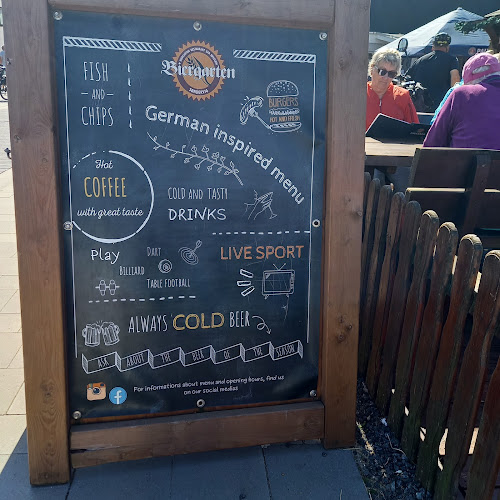 Biergarten
FISH
AND
CHIPS
BURGERS
HOT AND FRESH
German inspired menu
Hot
COFFEE
with great taste
COLD AND TASTY
DRINKS
Play
DART
BILLIARD
TABLE FOOTBALL
LIVE SPORT
ALWAYS COLD BEER
ASK ABOUT THE BEER OF THE SEASON
For informations about menu and opening hours, find us
on our social medias